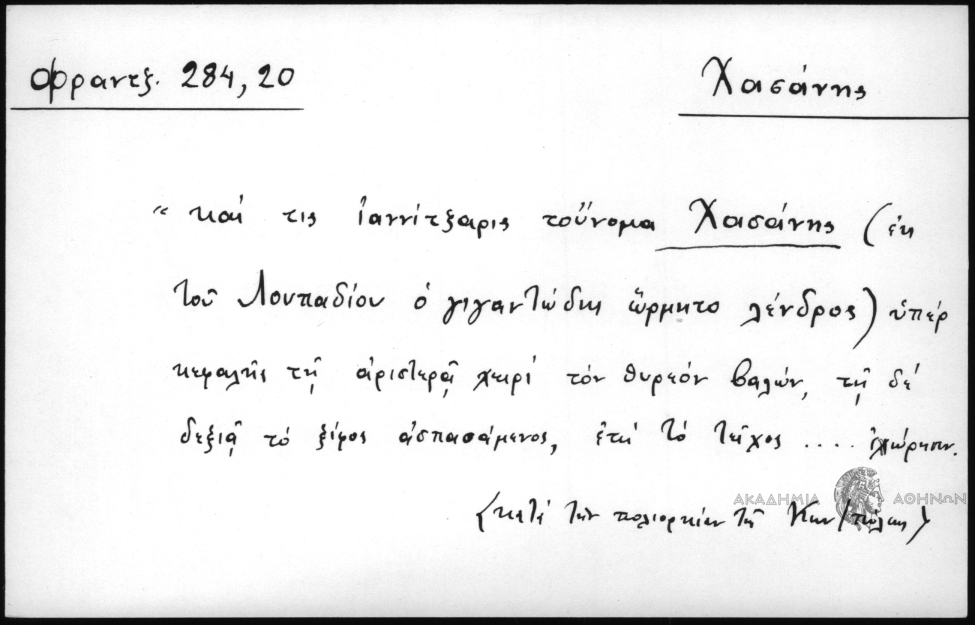 Φραντξ. 284, 20
Χασάνης
“ καί τις ἰαννίτξαρις τοὔνομα Χασάνης (ἐκ
τοῦ Λουπαδίου ὁ γιγαντώδης ὥρμητο λένδρος) ὑπέρ
κεφαλῆς τῇ ἀριστερᾷ χειρί τόν θυρεόν βαλών, τῇ δέ
δεξιᾷ τό ξίφος ἀσπασάμενος, ἐπί τό τεῖχος .... ἐχώρησεν.
ΑΚΑΔΗΜΙΑ ΑΘΗΝΩΝ
(κατά τήν πολιορκίαν τῆς Κων/πόλεως)